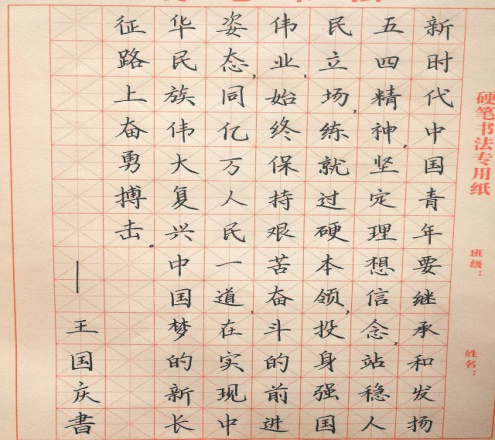 硬笔书法专用纸
班级：
姓名：
新时代中国青年要继承和发扬
五四精神,坚定理想信念,站稳人
民立场,练就过硬本领,投身强国
伟业,始终保持艰苦奋斗的前进
姿态,同亿万人民一道,在实现中
华民族伟大复兴中国梦的新长
征路上奋勇搏击。
—王国庆書